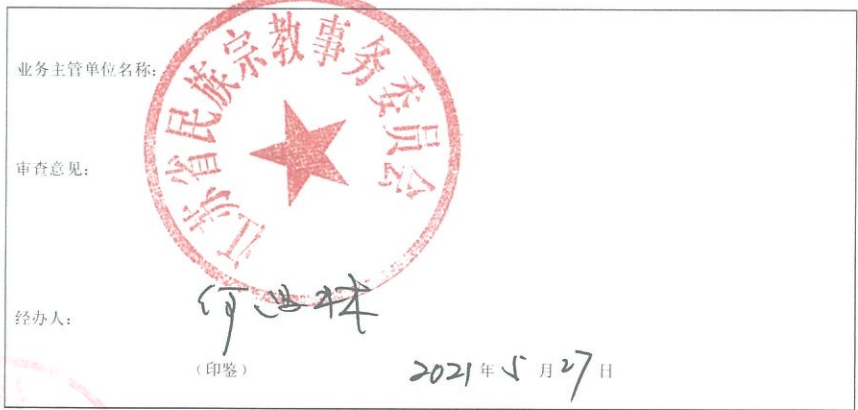 业务主管单位名称:
江苏省民族宗教事务委员会
审查意见:
经办人:
(印鉴) 2021年5月27日